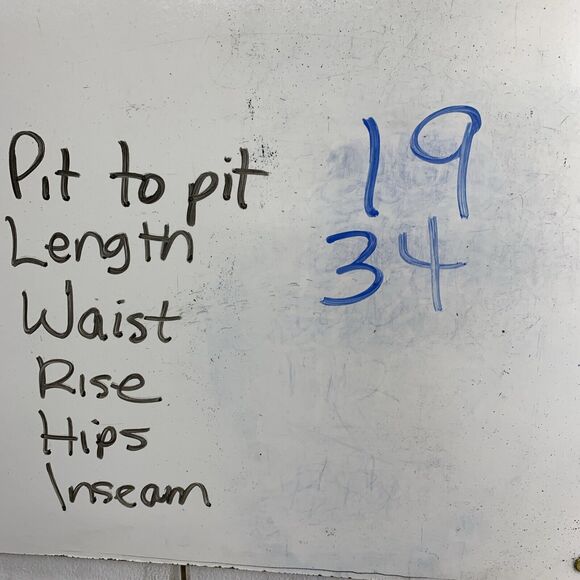 Pit to pit 19
Length 34
Waist
Rise
Hips
Inseam